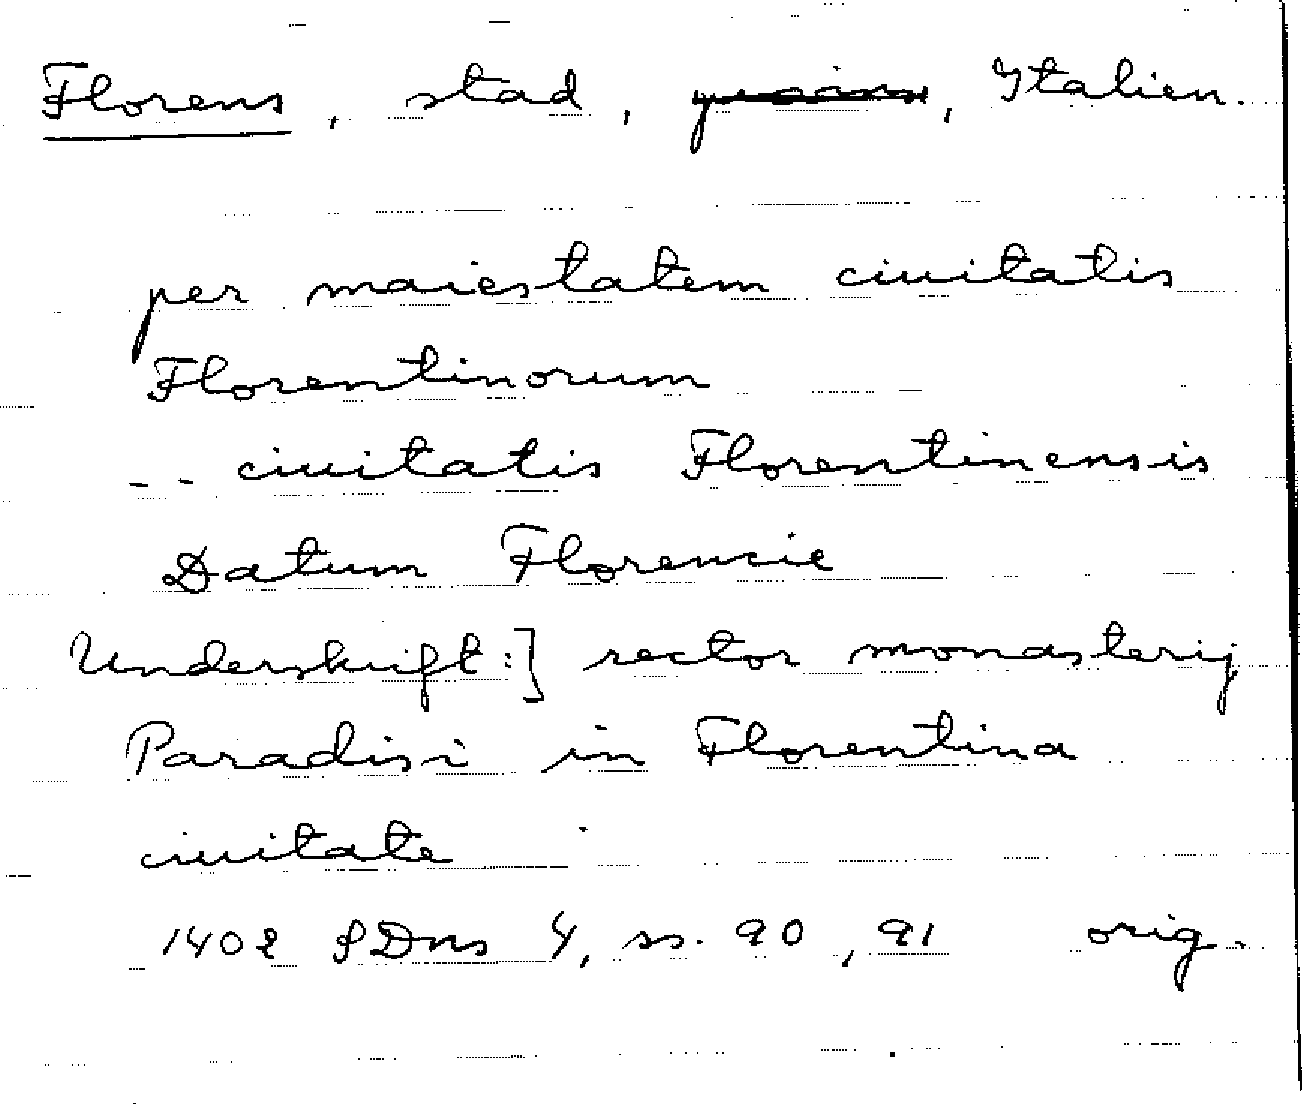 Florens, stad, , Italien.
per maiestatem ciuitatis
Florentinorum
-- ciuitatis Florentinensis
Datum Florencie
Underskrift:] rector monasterij
Paradisi in Florentina
ciuitate
1402 SDns 4, ss. 90, 91 orig.